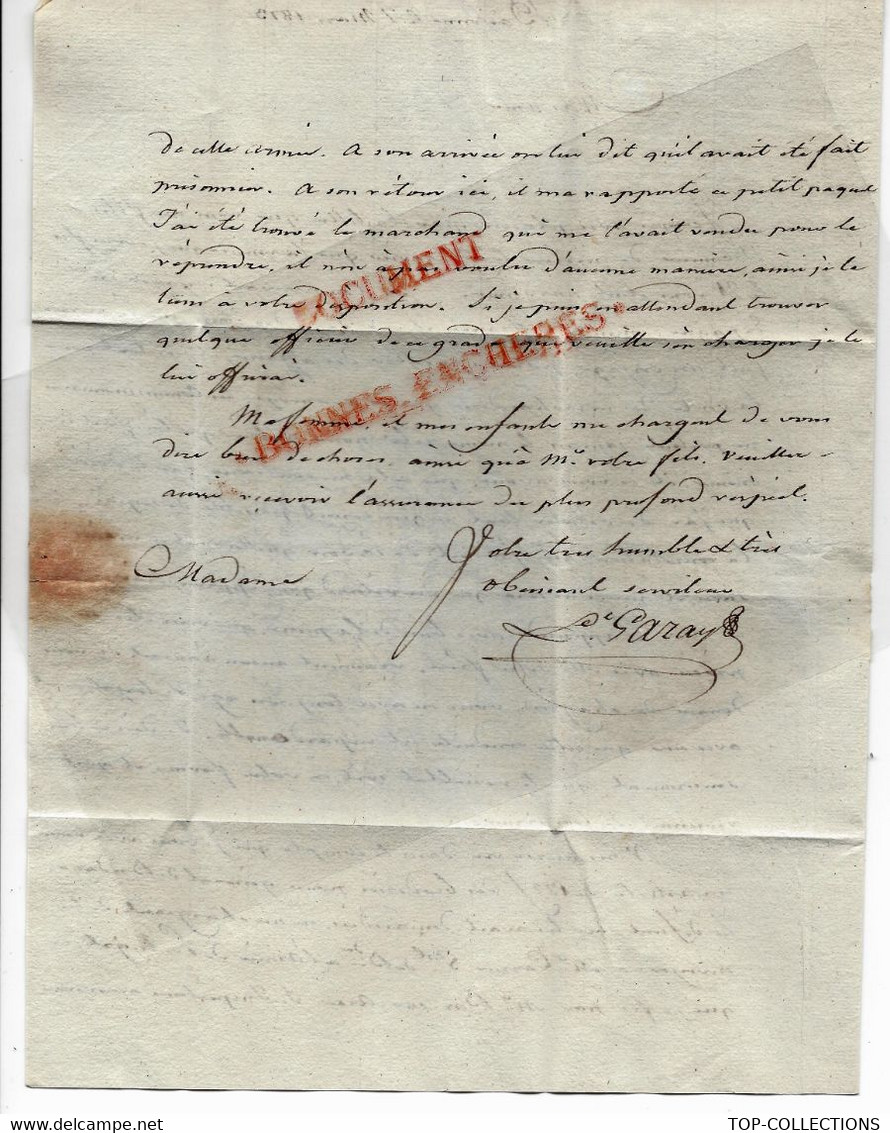 de cette armée. A son arrivée on lui dit qu'il avait été fait
prisonnier. A son rétour ici, il m'a rapporté ce petit paquet
J'ai été trouvé le marchand qui me l'avait vendu pour le
réprendre, il n'en à pas voulu d'aucune manière, ainsi je le
tiens à votre disposition. Si je puis en attendant trouver
quelque officier de ce grade qui veuille s'en charger je le
lui offrirai.
Ma femme et mes enfants me chargent de vous
dire bien de choses, ainsi qu'à Mr. votre fils. Veuillez
aussi recevoir l'assurance du plus profond réspect.
Votre très humble & très
Madame
obéissant serviteur
Garay
DOCUMENT
BONNES ENCHERES
TOP-COLLECTIONS